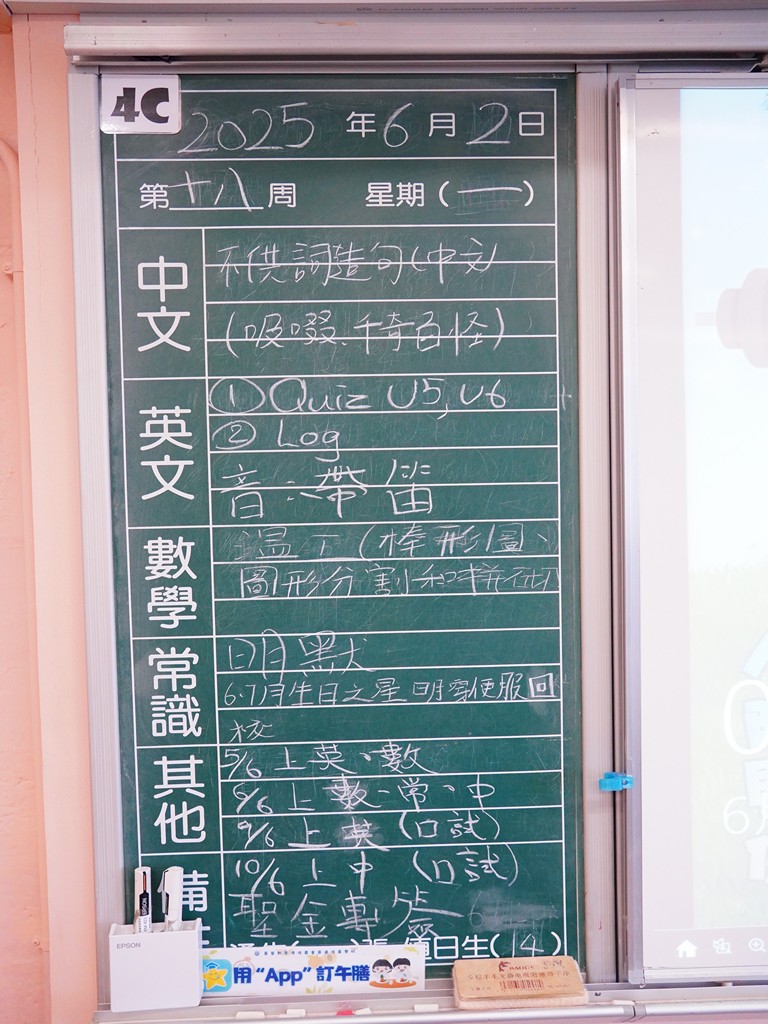 4C
2025年6月2日
第十八周 星期(一)
中文
不供詞造句(中文)
(吸啜、千奇百怪)
英文
① Quiz U5, U6
② Log
音：帶笛
數學
(棒形圖、
圖形分割和拼砌)
常識
明默
6.7月生日之星 明穿便服回
校
其他
5/6 上英、數
6/6 上數、常、中
9/6 上英(口試)
10/6 上中(口試)
備
聖金專簽
直日生(14)
EPSON
用“App”訂午膳